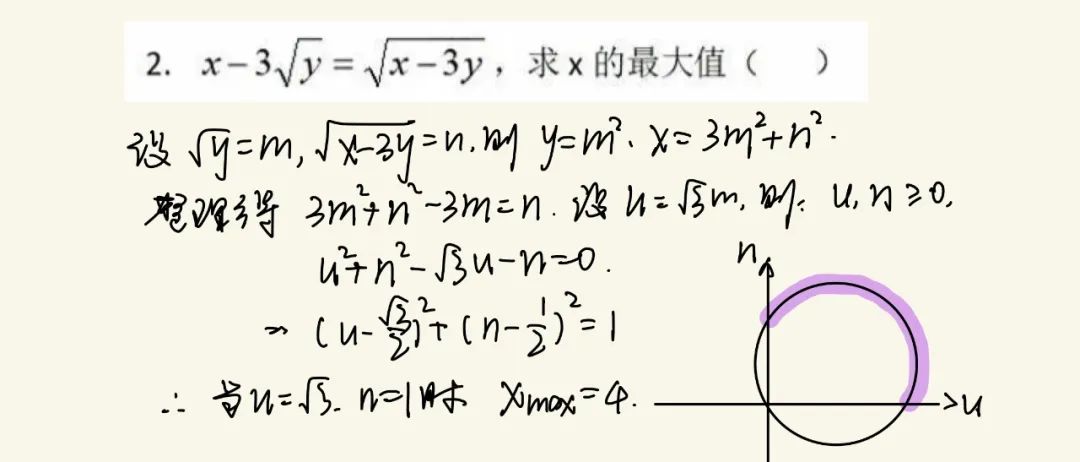 2. x-3√y=√(x-3y)，求 x 的最大值（  ）
设 √y=m, √(x-3y)=n, 则 y=m². x=3m²+n².
整理得 3m²+n²-3m=n. 设 u=√3m, 则: u,n≥0,
u²+n²-√3u-n=0.
→ (u-√3/2)²+(n-1/2)²=1
∴ 当u=√3. n=1时 xmax=4.
n
u